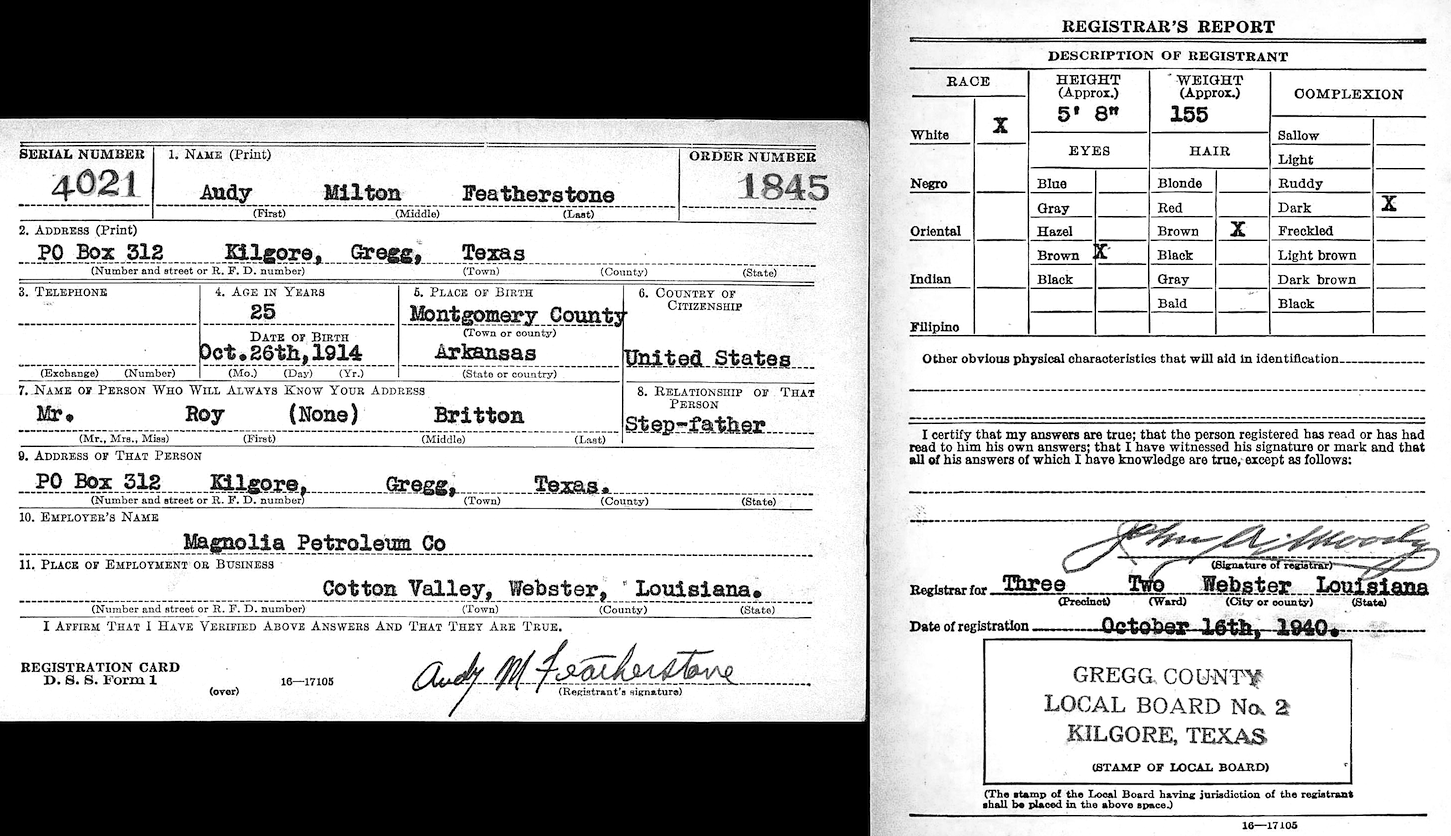 SERIAL NUMBER 1. NAME (Print) ORDER NUMBER
4021 Audy Milton Featherstone 1845
(First) (Middle) (Last)
2. ADDRESS (Print)
PO Box 312 Kilgore, Gregg, Texas
(Number and street or R. F. D. number) (Town) (County) (State)
3. TELEPHONE 4. AGE IN YEARS 5. PLACE OF BIRTH 6. COUNTRY OF CITIZENSHIP
25 Montgomery County
DATE OF BIRTH (Town or county)
Oct.26th,1914 Arkansas United States
(Exchange) (Number) (Mo.) (Day) (Yr.) (State or country)
7. NAME OF PERSON WHO WILL ALWAYS KNOW YOUR ADDRESS 8. RELATIONSHIP OF THAT PERSON
Mr. Roy (None) Britton Step-father
(Mr., Mrs., Miss) (First) (Middle) (Last)
9. ADDRESS OF THAT PERSON
PO Box 312 Kilgore, Gregg, Texas.
(Number and street or R. F. D. number) (Town) (County) (State)
10. EMPLOYER'S NAME
Magnolia Petroleum Co
11. PLACE OF EMPLOYMENT OR BUSINESS
Cotton Valley, Webster, Louisiana.
(Number and street or R. F. D. number) (Town) (County) (State)
I AFFIRM THAT I HAVE VERIFIED ABOVE ANSWERS AND THAT THEY ARE TRUE.
REGISTRATION CARD
D. S. S. Form 1
(over) 16—17105
Audy M Featherstone
(Registrant's signature)
REGISTRAR'S REPORT
DESCRIPTION OF REGISTRANT
RACE HEIGHT (Approx.) WEIGHT (Approx.) COMPLEXION
5' 8" 155
White X Sallow
EYES HAIR Light
Negro Blue Blonde Ruddy
Gray Red Dark X
Oriental Hazel Brown X Freckled
Brown X Black Light brown
Indian Black Gray Dark brown
Bald Black
Filipino
Other obvious physical characteristics that will aid in identification
I certify that my answers are true; that the person registered has read or has had
read to him his own answers; that I have witnessed his signature or mark and that
all of his answers of which I have knowledge are true, except as follows:
John A. Moody
(Signature of registrar)
Registrar for Three Two Webster Louisiana
(Precinct) (Ward) (City or county) (State)
Date of registration October 16th, 1940.
GREGG COUNTY
LOCAL BOARD No. 2
KILGORE, TEXAS
(STAMP OF LOCAL BOARD)
(The stamp of the Local Board having jurisdiction of the registrant
shall be placed in the above space.)
16—17105